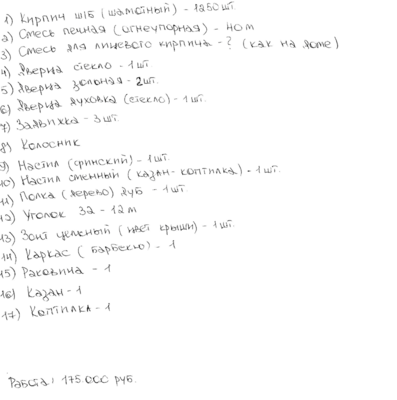 1) Кирпич ш/б (шамотный) - 1250 шт.
2) Смесь печная (огнеупорная) - 40 м
3) Смесь для лицевого кирпича - ? (как на доме)
4) Дверца стекло - 1 шт
5) Дверца зольная - 2 шт.
6) Дверца духовка (стекло) - 1 шт.
7) Задвижка - 3 шт.
8) Колосник
9) Настил (финский) - 1 шт.
10) Настил сменный (казан-коптилка) - 1 шт.
11) Полка (дерево) дуб - 1 шт.
12) Уголок 32 - 12 м
13) Зонт цельный (цвет крыши) - 1 шт.
14) Каркас (барбекю) - 1
15) Раковина - 1
16) Казан - 1
17) Коптилка - 1
Работа: 175.000 руб.